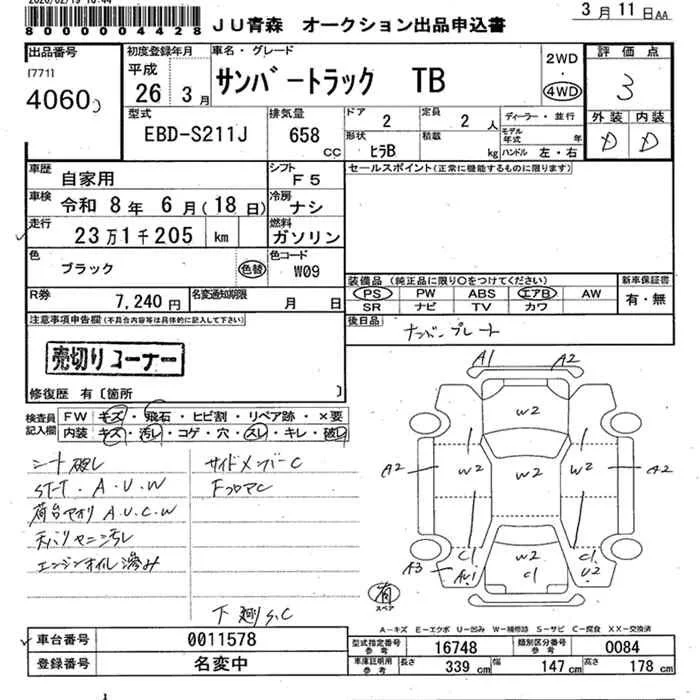 2026/02/19 16:44
8000004428
JU青森 オークション出品申込書
3月11日AA
出品番号
[771]
4060
初度登録年月
平成
26年3月
車名・グレード
サンバートラック TB
2WD
・
4WD
評価点
3
外装 内装
D D
型式
EBD-S211J
排気量
658
CC
ドア
2
定員
2人
形状
ヒラB
積載
kg
ディーラー・並行
モデル年式 年
ハンドル 左・右
車歴
自家用
シフト
F5
車検
令和 8年 6月(18日)
冷房
ナシ
走行
23万1千205 km
燃料
ガソリン
色
ブラック
色替
色コード
W09
R券
7,240円
名変通知期限
月 日
セールスポイント(正常に機能するものに限ります)
装備品(純正品に限り○をつけてください)
PS PW ABS エアB AW
SR ナビ TV カワ
新車保証書
有・無
後日品
ナンバープレート
注意事項申告欄(不具合内容等は具体的に記入して下さい)
売切りコーナー
修復歴 有〔箇所 〕
検査員記入欄
FW キズ・飛石・ヒビ割・リペア跡・×要
内装 キズ・汚レ・コゲ・穴・スレ・キレ・破レ
シート破レ
ST-T.A.U.W
荷台アオリA.U.C.W
天バリヤニ汚レ
エンジンオイル滲み
サイドメンバーC
FフロアC
下廻S.C
A1 A2
W2
A2 W2 W2 W2 A2
A3 AU1 C1
W2
C1
C1 U2
有
スペア
A−キズ E−エクボ U−凹み W−補修跡 S−サビ C−腐食 XX−交換済
車台番号 0011578
登録番号 名変中
型式指定番号参考 16748
類別区分番号参考 0084
車庫証明用参考 長さ 339cm 幅 147cm 高さ 178cm